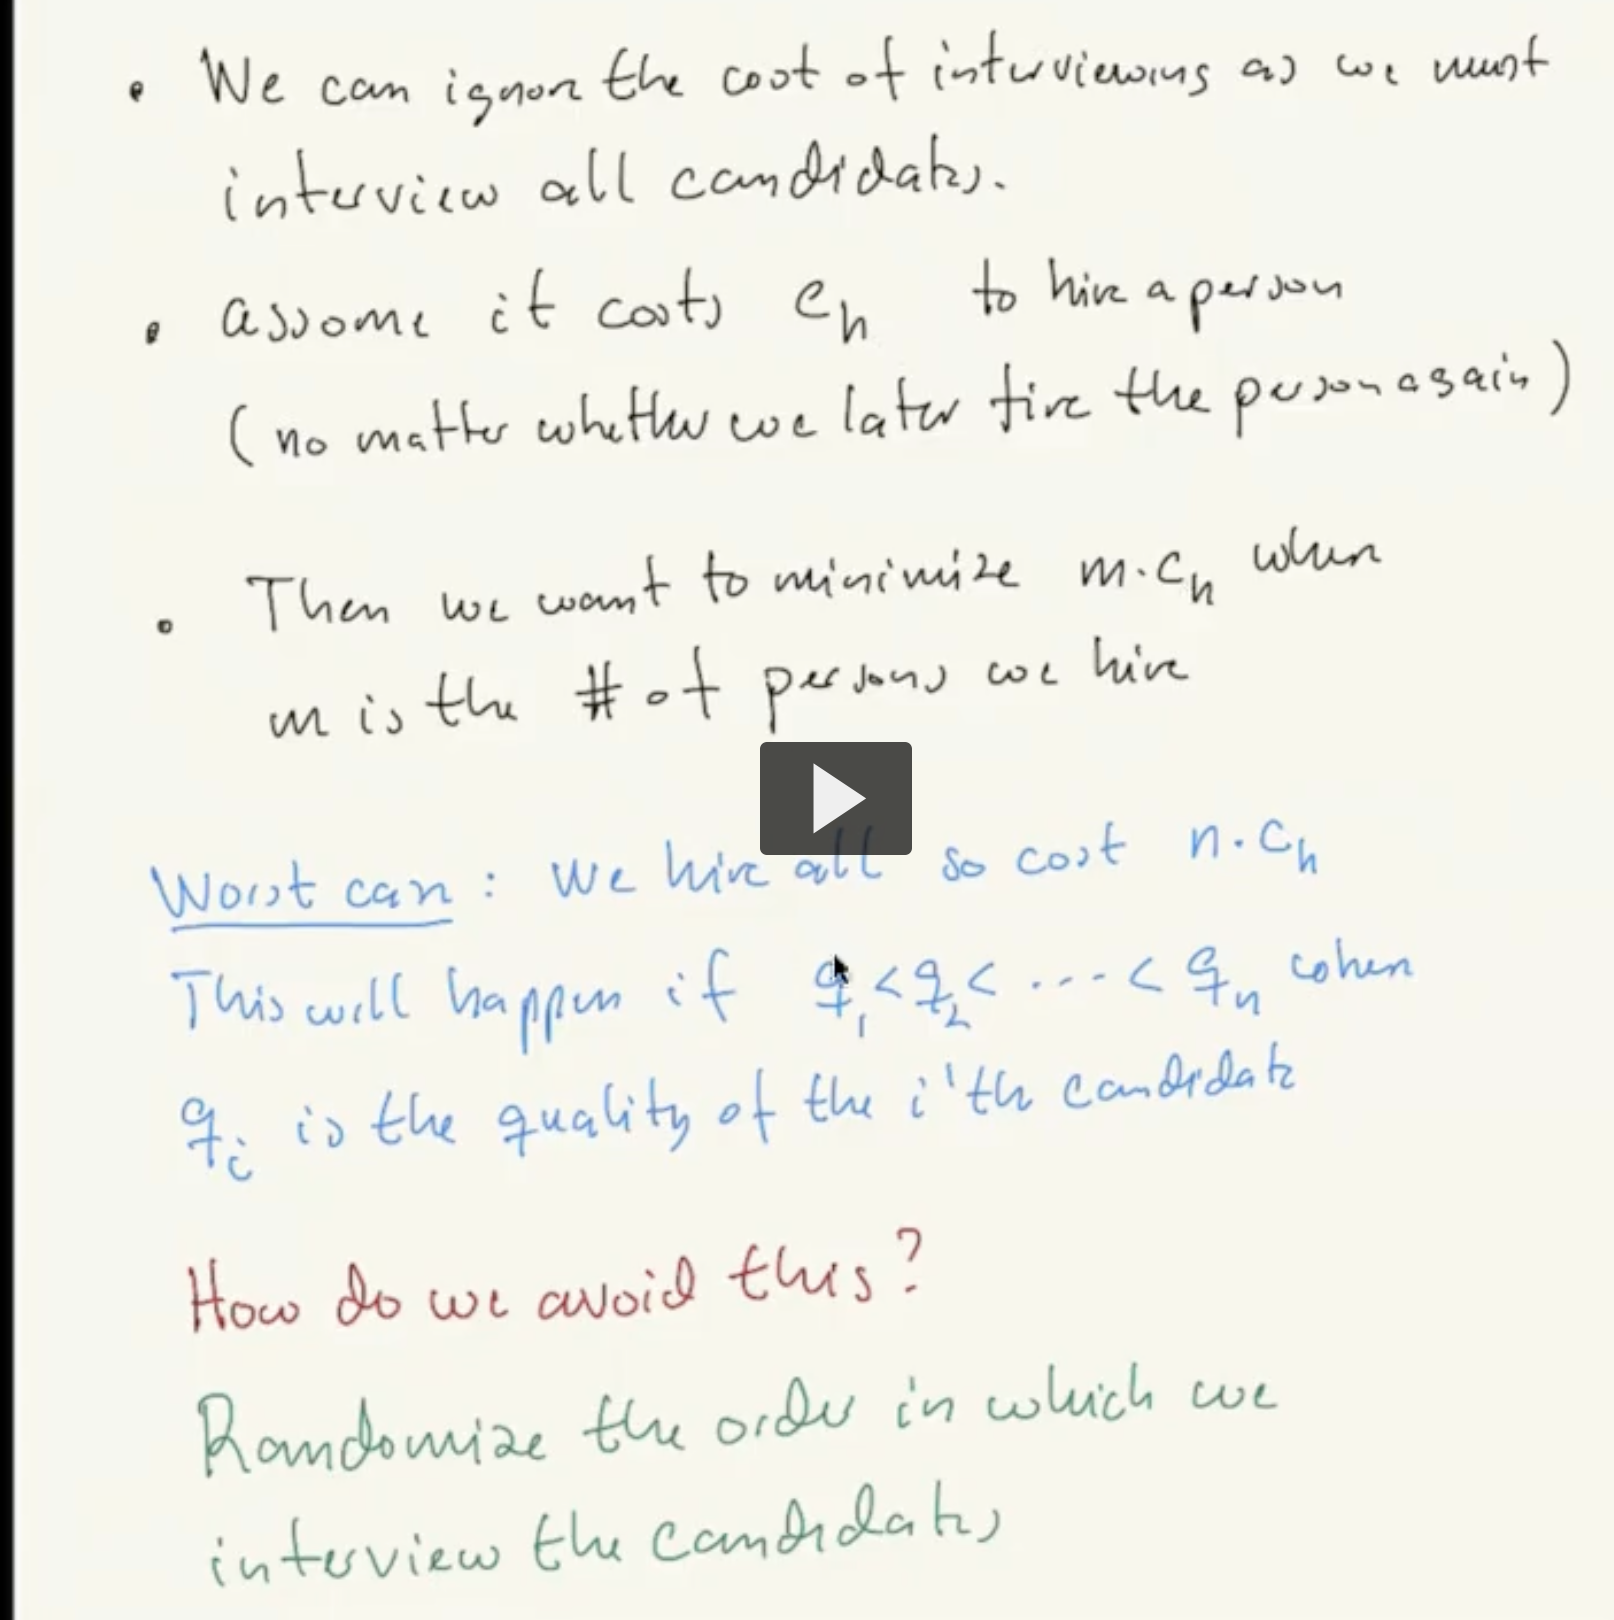 • We can ignore the cost of interviewing as we must
interview all candidates.
• assume it costs c_h to hire a person
(no matter whether we later fire the person again)
• Then we want to minimize m·c_h when
m is the # of persons we hire
Worst case: We hire all so cost n·c_h
This will happen if q_1 < q_2 < ... < q_n when
q_i is the quality of the i'th candidate
How do we avoid this?
Randomize the order in which we
interview the candidates